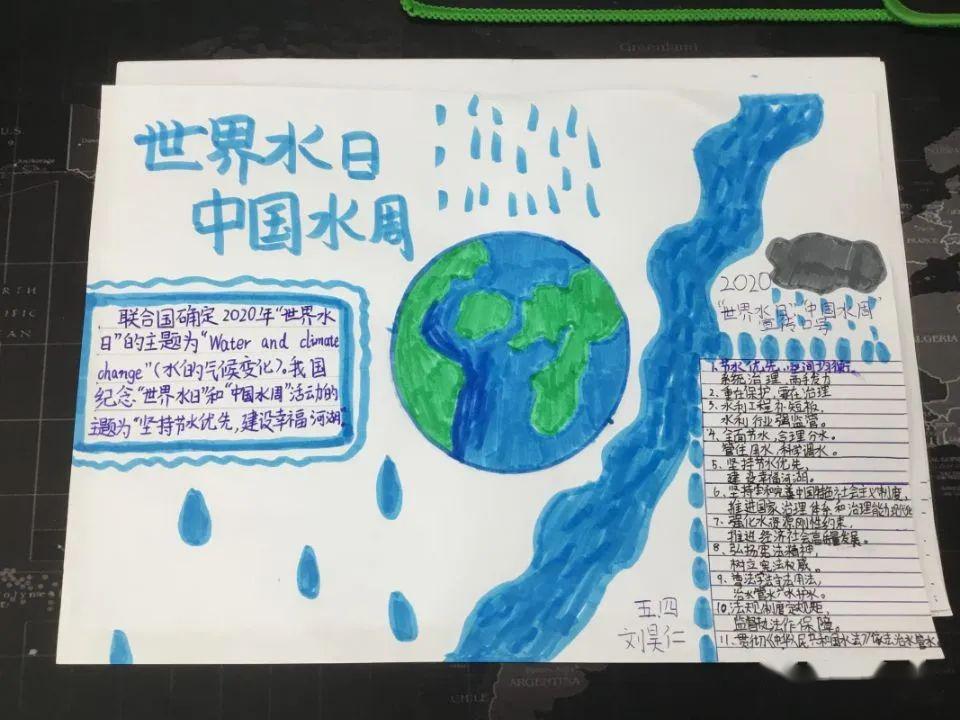 世界水日
中国水周
联合国确定2020年“世界水
日”的主题为“Water and climate
change”(水的气候变化)。我国
纪念“世界水日”和“中国水周”活动的
主题为“坚持节水优先,建设幸福河湖。”
2020
“世界水日”“中国水周”
宣传口号
1.节水优先,空间均衡,
系统治理,两手发力
2.重在保护,要在治理
3、水利工程补短板,
水利行业强监管。
4、全面节水,合理分水。
管住用水,科学调水。
5、坚持节水优先,
建设幸福河湖。
6、坚持和完善中国特色社会主义制度,
推进国家治理体系和治理能力现代化
7、强化水资源刚性约束,
推进经济社会高质量发展。
8、弘扬宪法精神,
树立宪法权威。
9、尊法学法守法用法,
治水管水 水护水。
10、法规制度定规矩,
监督执法作保障。
11、贯彻《中华人民共和国水法》依法治水管水
五.四
刘昊仁
Greenland
ALGERIA
ARGENTINA
CHILE